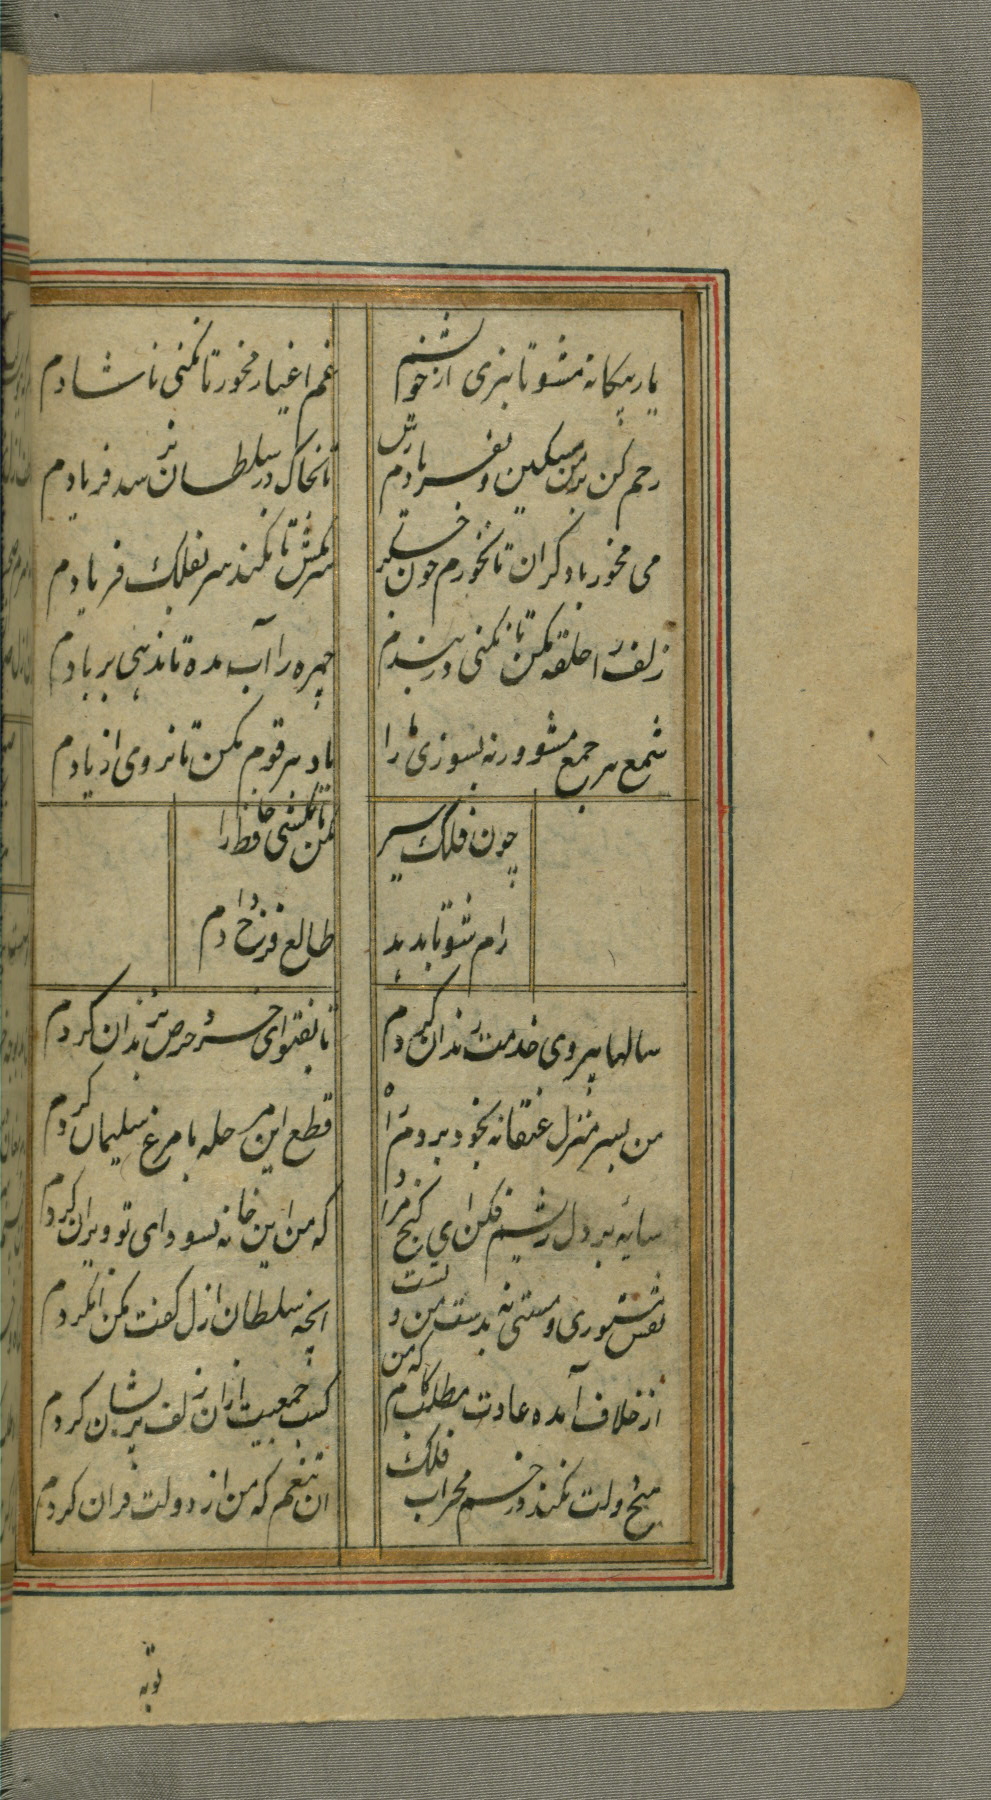 یار بیکانه مشو تا نبری از خویشتنم
غم اغیار مخور تا نکنی ناشادم
رحم کن بر من مسکین و بفریادم رس
تا بخاک در سلطان نرسد فریادم
می مخور با دکران تا نخورم خون جکر
سرمکش تا نکشد سر بفلک فریادم
زلف را حلقه مکن تا نکنی در بندم
چهره را آب مده تا ندهی بر بادم
شمع هر جمع مشو ورنه بسوزی ما را
یاد هر قوم مکن تا نروی از یادم
چون فلک سیر
مکن تا نکشی حافظ را
رام شو تا بدهد
طالع فرخ دادم
سالها پیروی خدمت رندان کردم
تا بفتوای خرد حرص بزندان کردم
من بسر منزل عنقا نه بخود بردم راه
قطع این مرحله با مرغ سلیمان کردم
سایه بر دل ریشم فکن ای کنج مراد
که من این خانه بسودای تو ویران کردم
نقش مستوری و مستی نه بدست من و تست
انچه سلطان ازل کفت بکن انکردم
از خلاف آمده عادت مطلب کام که من
کسب جمعیت ازان زلف پریشان کردم
هیچ دولت نکند در خم محراب فلک
ان تنعم که من از دولت قران کردم
توبه